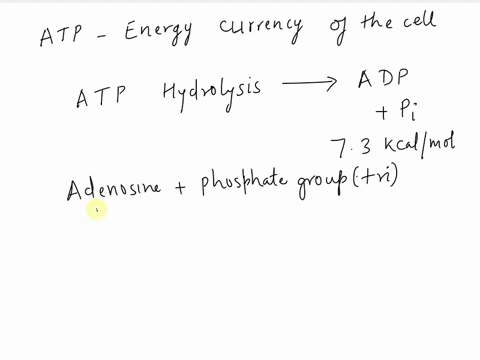 ATP - Energy currency of the cell
ATP Hydrolysis ⟶ ADP
+ Pi
7.3 kcal/mol
Adenosine + phosphate group (tri)